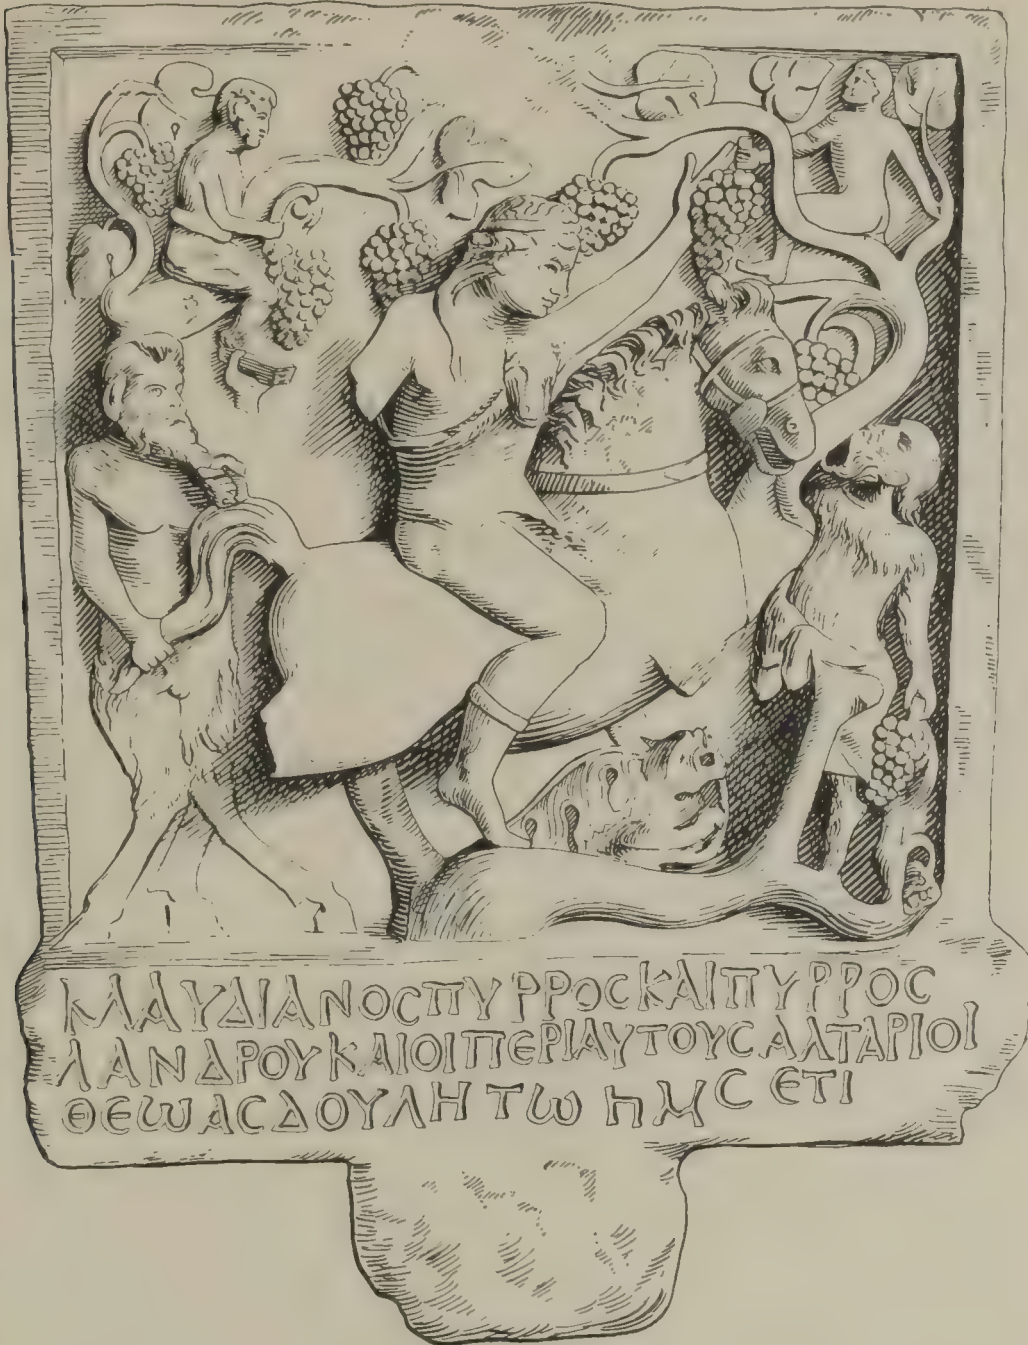 ΚΛΑΥΔΙΑΝΟϹΠΥΡΡΟϹΚΑΙΠΥΡΡΟϹ
ΛΑΝΔΡΟΥΚΑΙΟΙΠΕΡΙΑΥΤΟΥϹΑΛΤΑΡΙΟΙ
ΘΕωΑϹΔΟΥΛΗΤω
ϹΕΤΙ